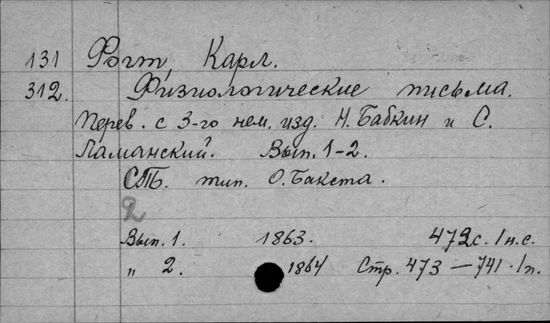 131 Фогт, Карл.
312. Физиологические письма.
Перев. с 3-го нем. изд. Н. Бабкин и С.
Ламанский. Вып. 1-2.
СПБ. тип. О. Бакста.
2
Вып. 1. 1863. 472 с. 1 н.с.
" 2. 1864 Стр. 473 — 741. 1 п.